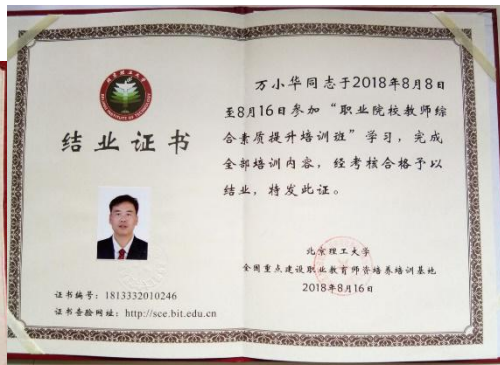 北京理工大学
BEIJING INSTITUTE OF TECHNOLOGY
结业证书
证书编号：1813332010246
证书查验网址：http://sce.bit.edu.cn
万小华同志于2018年8月8日
至8月16日参加“职业院校教师综
合素质提升培训班”学习，完成
全部培训内容，经考核合格予以
结业，特发此证。
北京理工大学
全国重点建设职业教育师资培养培训基地
2018年8月16日